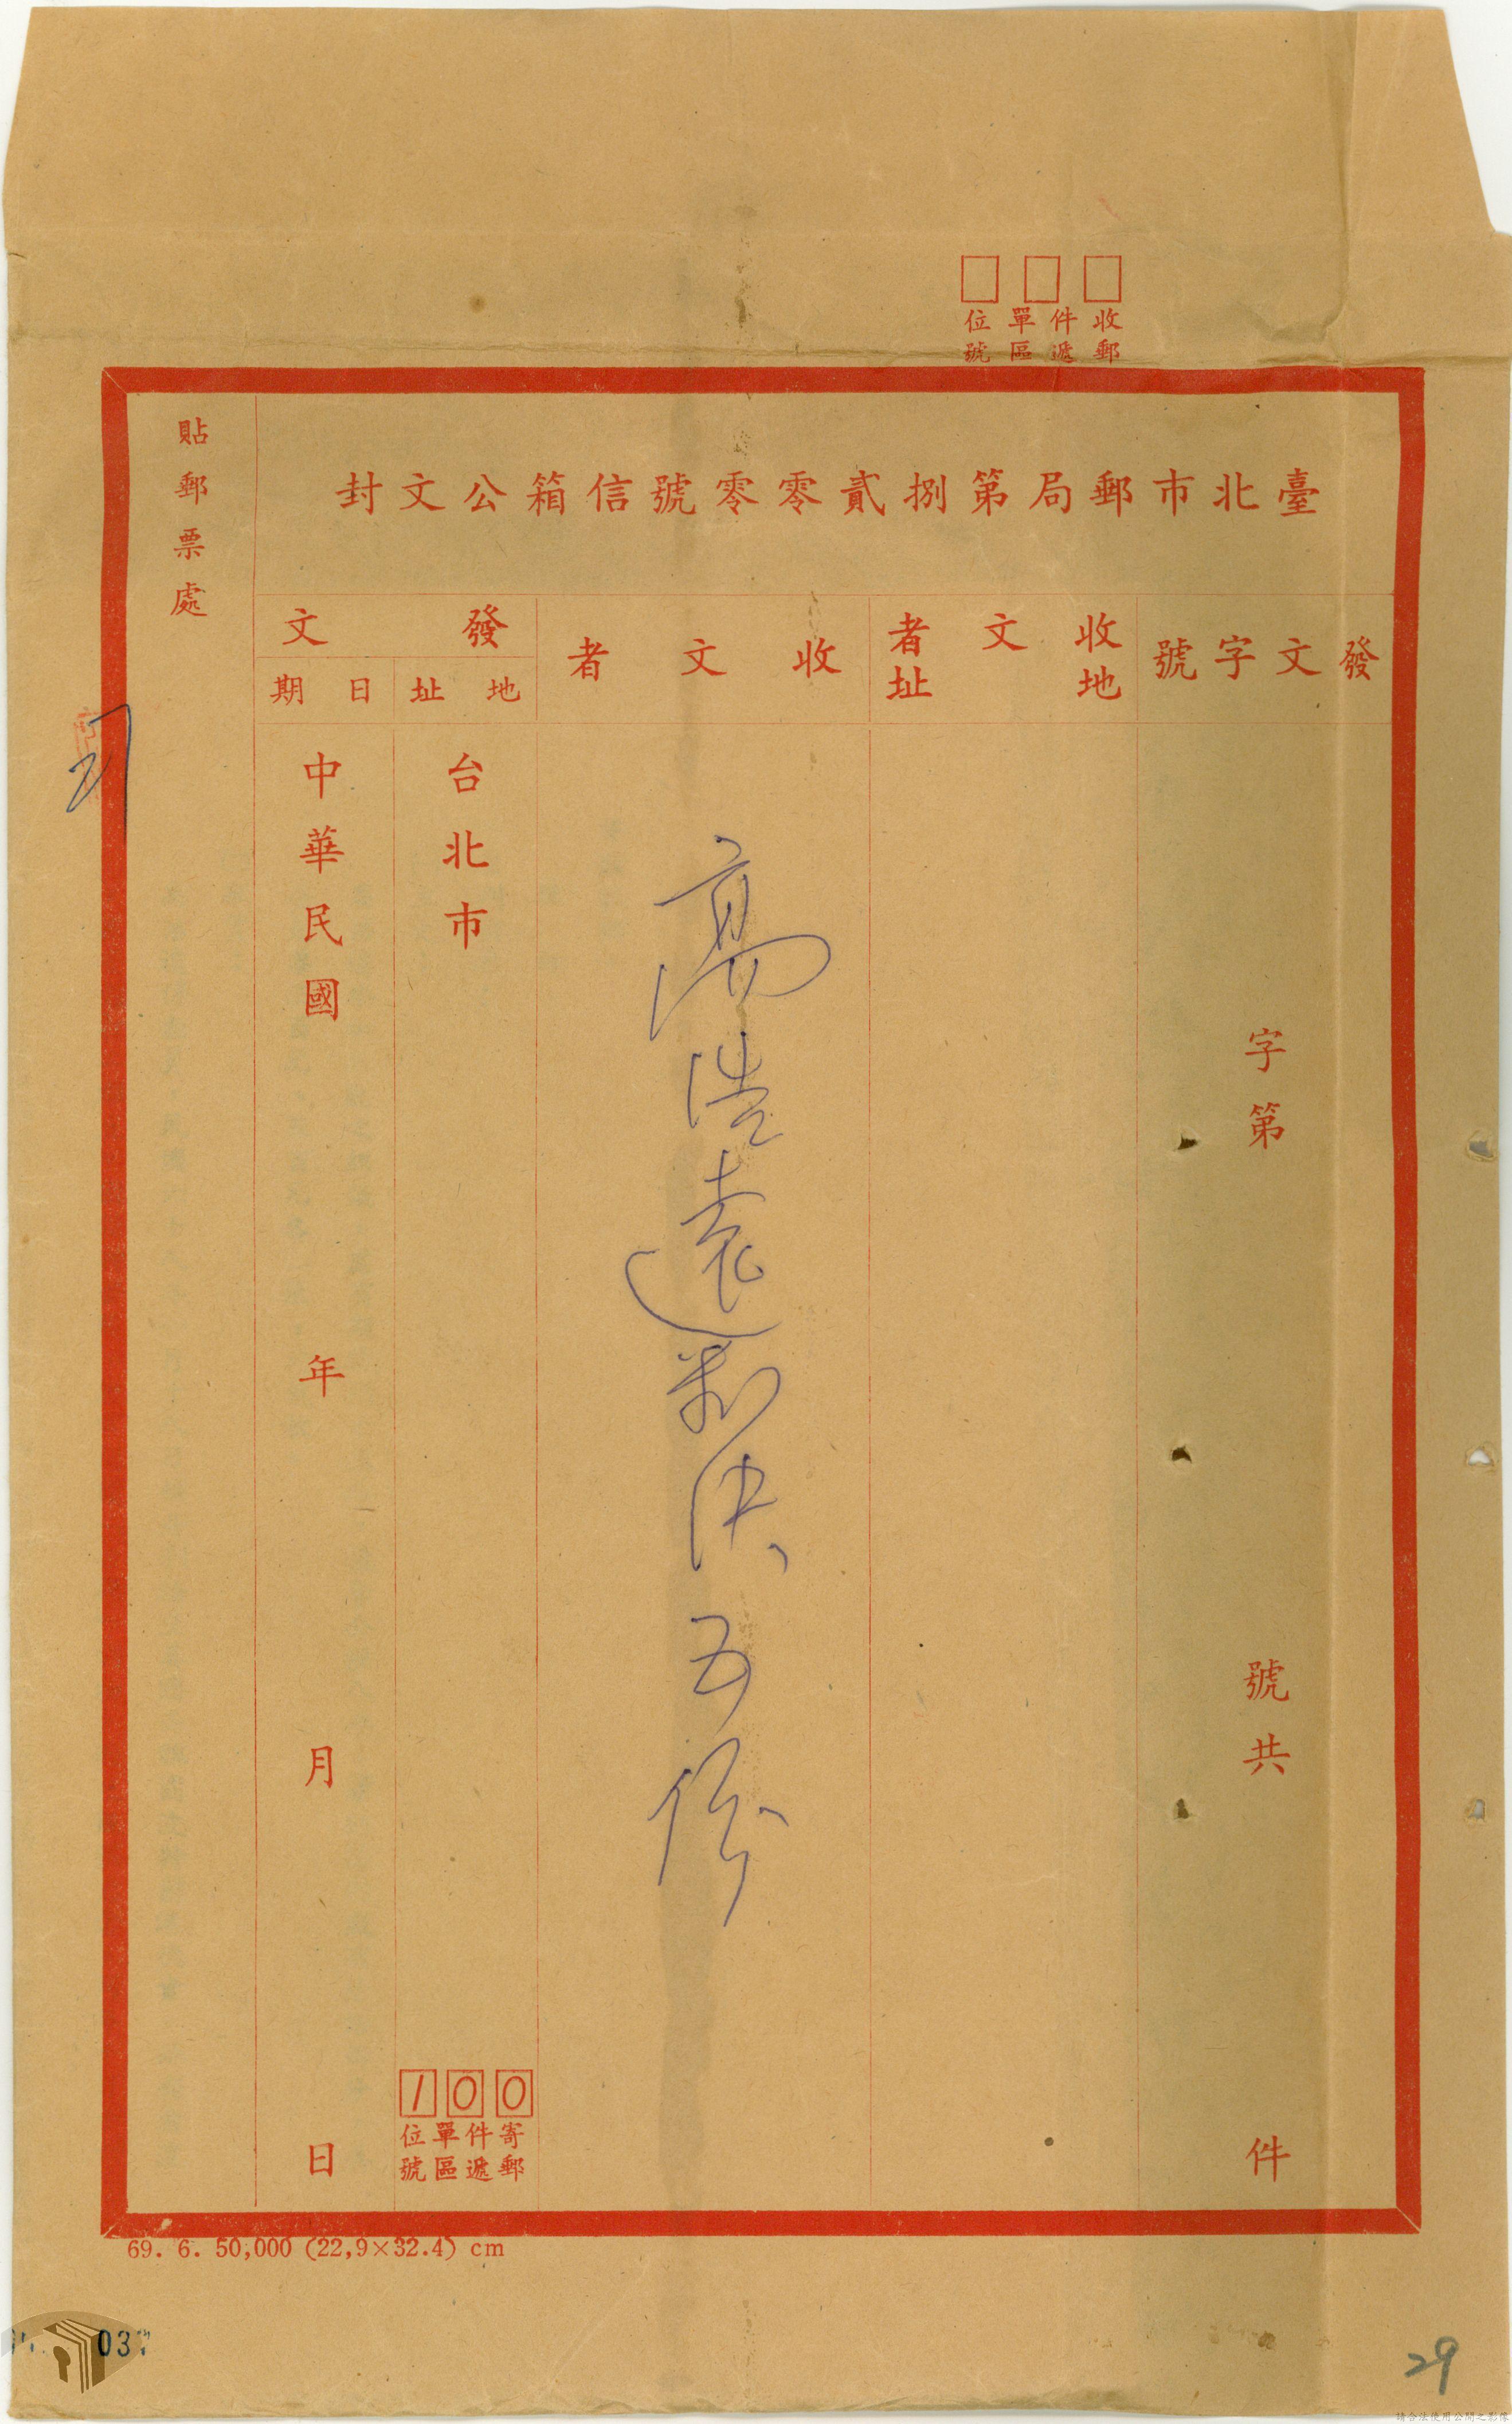 收件單位
郵遞區號
臺北市郵局第捌貳零零號信箱公文封
發文字號
收文者
地址
收文者
發文
地址
日期
貼郵票處
字第
號共
件
高浩遠判決五份
台北市
100
寄件單位
郵遞區號
中華民國
年
月
日
69. 6. 50,000 (22,9×32.4) cm
03
29
請合法使用公開之影像